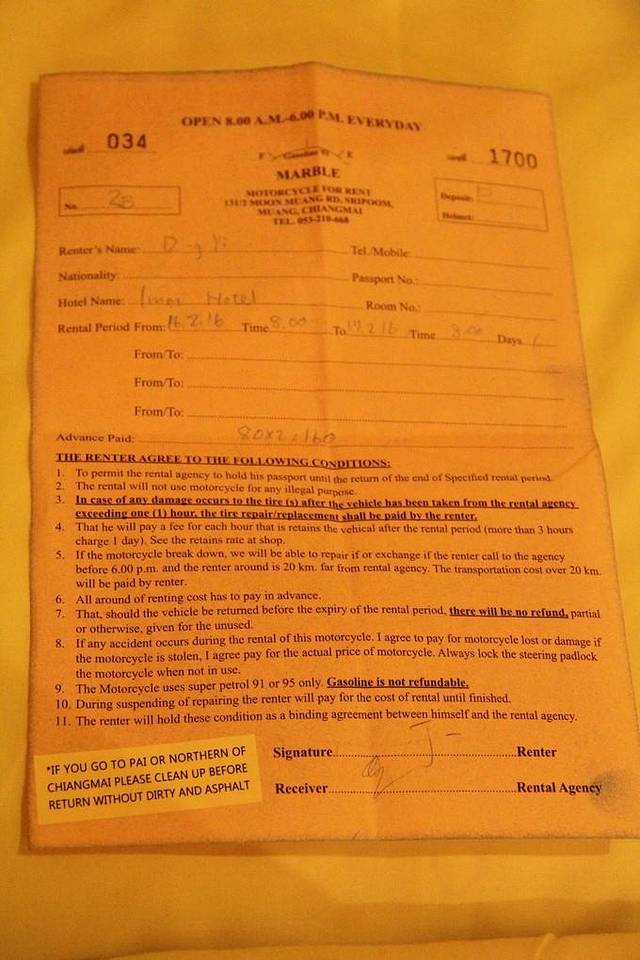 OPEN 8.00 A.M.-6.00 P.M. EVERYDAY
เล่มที่ 034
เลขที่ 1700
MARBLE
MOTORCYCLE FOR RENT
131/2 MOON MUANG RD, SRIPOOM,
MUANG, CHIANGMAI
TEL. 053-210-668
No. 2B
Deposit: P
Helmet:
Renter's Name:
Tel/Mobile:
Nationality:
Passport No.:
Hotel Name: Imm Hotel
Room No.:
Rental Period From: 16.2.16 Time 8.00 To 17.2.16 Time 8.00 Days
From/To:
From/To:
From/To:
Advance Paid: 80x2=160
THE RENTER AGREE TO THE FOLLOWING CONDITIONS:
1. To permit the rental agency to hold his passport until the return of the end of Specified rental period.
2. The rental will not use motorcycle for any illegal purpose.
3. In case of any damage occurs to the tire (s) after the vehicle has been taken from the rental agency
exceeding one (1) hour, the tire repair/replacement shall be paid by the renter.
4. That he will pay a fee for each hour that is retains the vehical after the rental period (more than 3 hours
charge 1 day). See the retains rate at shop.
5. If the motorcycle break down, we will be able to repair if or exchange if the renter call to the agency
before 6.00 p.m. and the renter around is 20 km. far from rental agency. The transportation cost over 20 km.
will be paid by renter.
6. All around of renting cost has to pay in advance.
7. That, should the vehicle be returned before the expiry of the rental period, there will be no refund, partial
or otherwise, given for the unused.
8. If any accident occurs during the rental of this motorcycle. I agree to pay for motorcycle lost or damage if
the motorcycle is stolen, I agree pay for the actual price of motorcycle. Always lock the steering padlock
the motorcycle when not in use.
9. The Motorcycle uses super petrol 91 or 95 only. Gasoline is not refundable.
10. During suspending of repairing the renter will pay for the cost of rental until finished.
11. The renter will hold these condition as a binding agreement between himself and the rental agency.
*IF YOU GO TO PAI OR NORTHERN OF
CHIANGMAI PLEASE CLEAN UP BEFORE
RETURN WITHOUT DIRTY AND ASPHALT
Signature Renter
Receiver Rental Agency